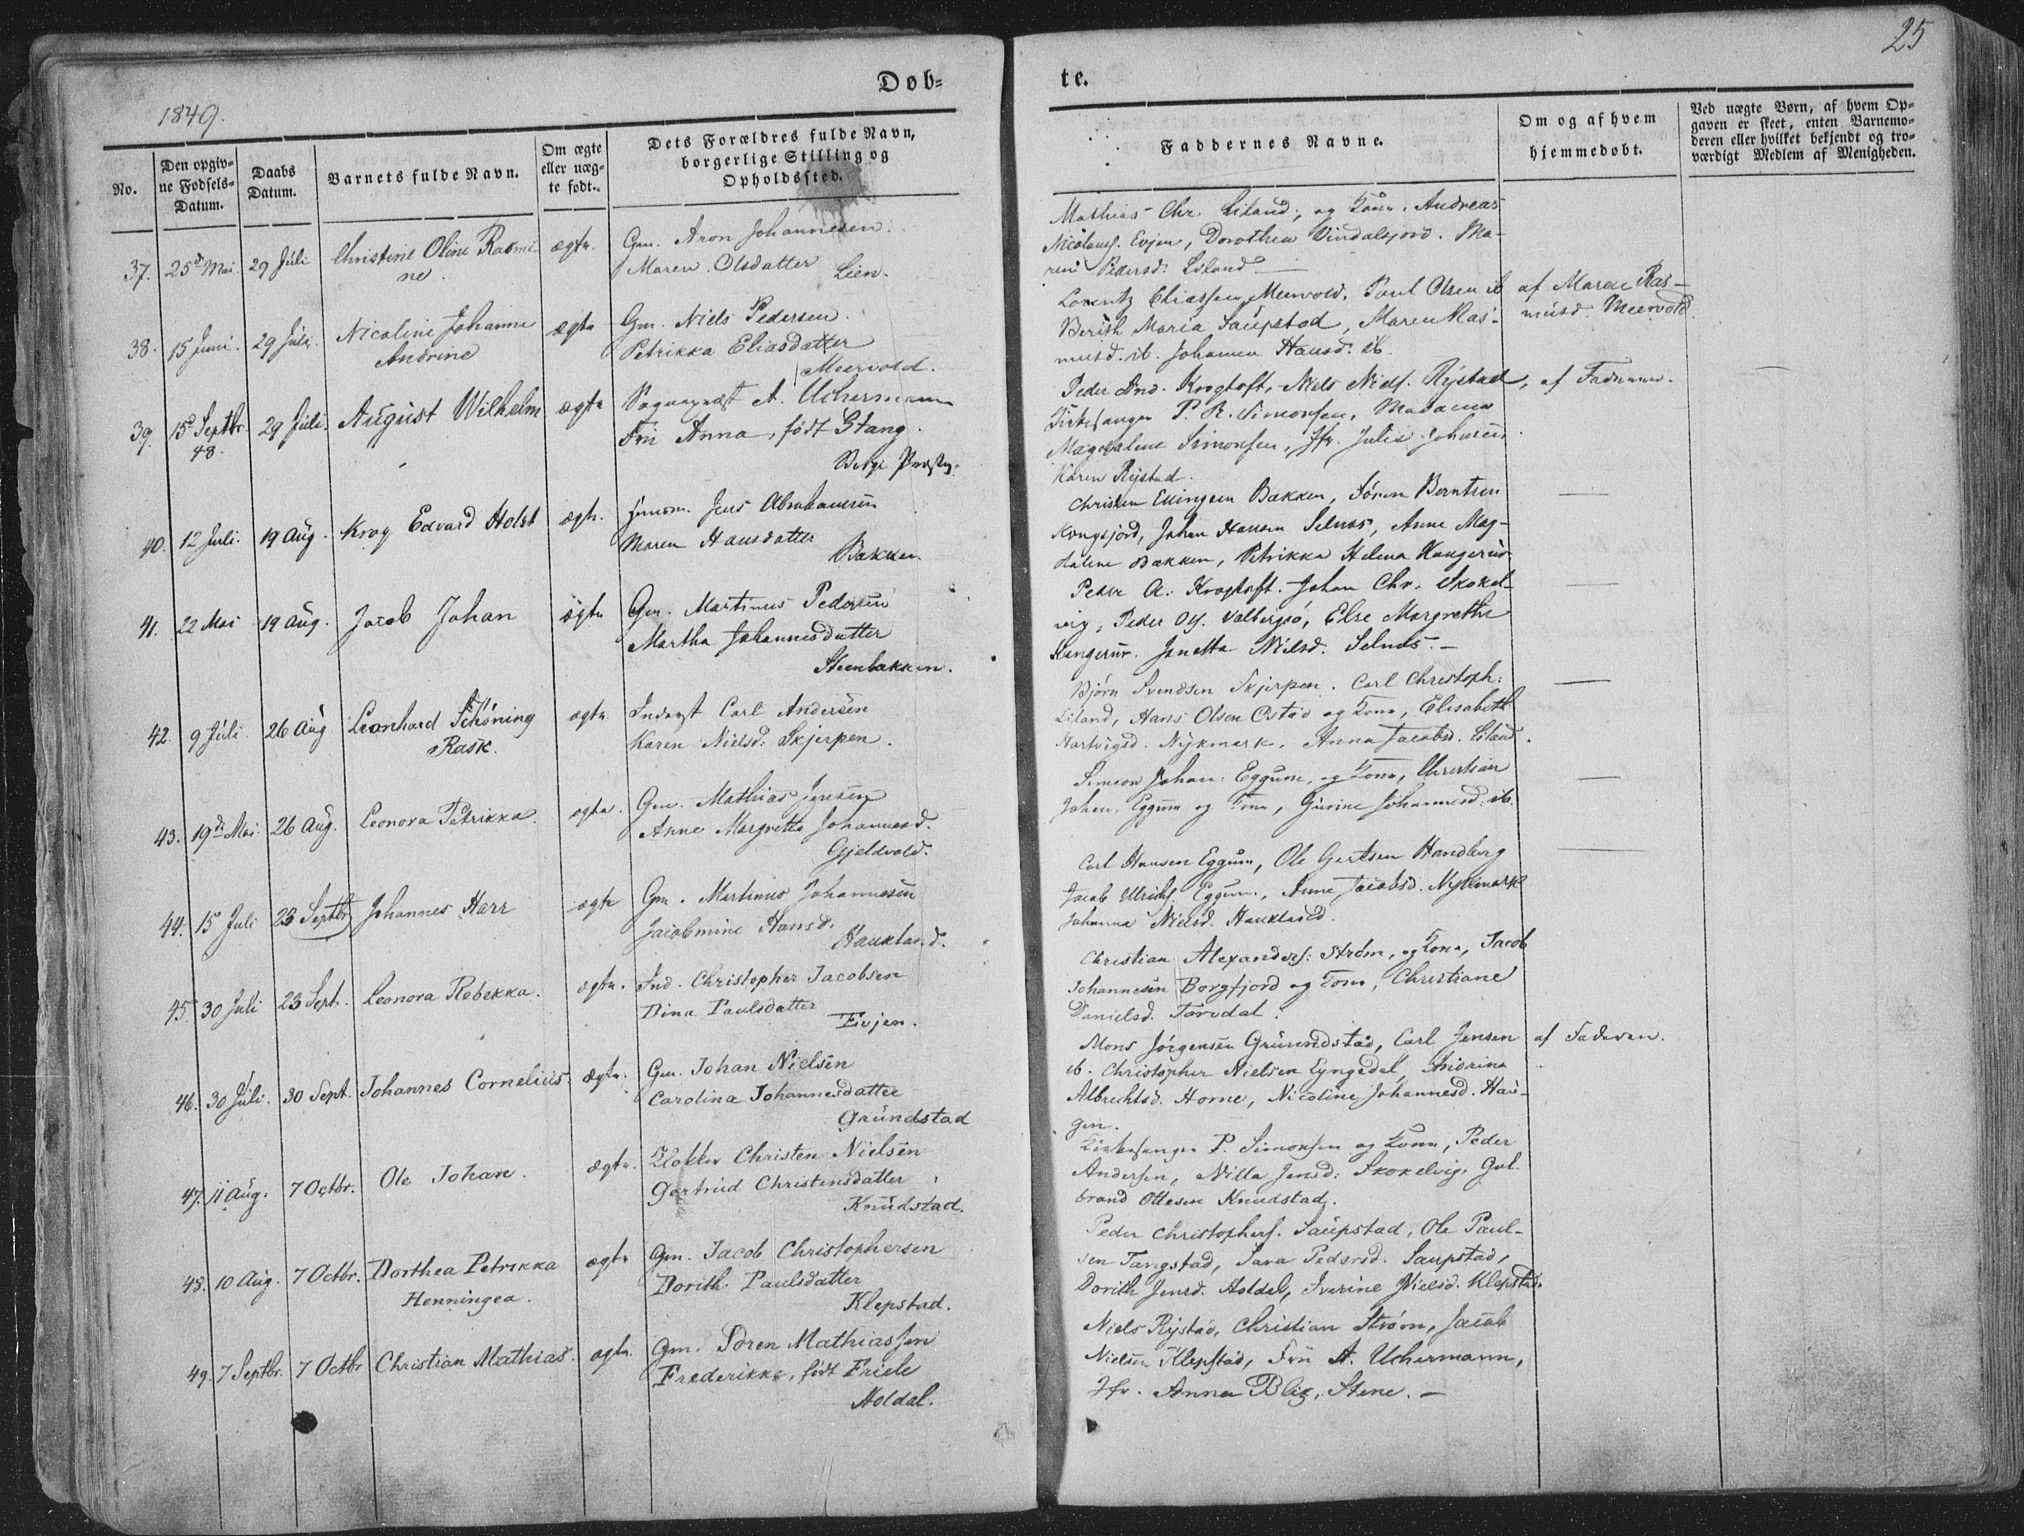 25
Døb=
te.
1849.
No.
Den opgiv=
ne Fødsels=
Datum.
Daabs
Datum.
Barnets fulde Navn.
Om ægte
eller uæg=
te født.
Dets Forældres fulde Navn,
borgerlige Stilling og
Opholdssted.
Faddernes Navne.
Om og af hvem
hjemmedøbt.
Ved uægte Børn, af hvem Op=
gaven er skeet, enten Barnemo=
deren eller hvilket bekjendt og tro=
værdigt Medlem af Menigheden.
37. 25de Mai. 29 Juli Christine Oline Rasmi-
ne. ægte. Gm. Aron Johannesen.
Maren Olsdatter
Lien.
Mathias Chr. Liland, og Kone. Andreas
Nicolaus. Evjen, Dorothea Vindalsjord. Ma-
ren Pedersd. Liland
38. 15 Juni. 29 Juli. Nicoline Johanne
Andrine ægte Gm. Niels Pedersen.
Petrikka Eliasdatter
Meervold.
Lorentz Eliassen Meervold, Paul Olsen ib
Berith Maria Saupstad, Maren Ras-
musd. ib. Johanna Hansd. ib.
af Maren Ras-
musd. Meervold.
39. 15d Septbr.
48. 29 Juli. August Wilhelm ægte Sognepræst A. Uchermann
Fru Anna, født Stang.
Borge Præstg.
Peder And. Krogtoft, Niels Niels. Rystad,
Kirkesanger P. R. Simonsen, Madame
Magdalene Simonsen, Jfr. Julie Johnsen,
Karen Rystad.
af Faderen.
40. 12 Juli. 19 Aug. Krog Edvard Holst ægte. Huusm. Jens Abrahamsen
Maren Hansdatter
Bakken
Christen Ellingsen Bakken, Søren Berntsen
Kongsjord, Johan Hansen Selnæs, Anne Mag-
dalene Bakken, Petrikka Helena Haugerur
41. 22 Mai 19 Aug. Jacob Johan ægte Gm. Martinus Pedersen
Martha Johannesdatter
Steenbakken.
Peder A. Krogtoft. Johan Chr. Skokel-
vig, Peder Ols. Valbergsø, Else Margrethe
Haugerur. Janetta Nielsd. Selnæs.
42. 9 Juli. 26 Aug Leonhard Schöning
Rask. ægte Inderst Carl Andersen
Karen Nielsd. Skjerpen.
Bjørn Svendsen Skjerpen. Carl Christoph:
Liland, Hans Olsen Ostad og Kone, Elisabeth
Hartvigsd. Nykmark. Anna Jacobsd. Liland.
43. 19de Mai. 26 Aug. Leonora Petrikka. ægte. Gm. Mathias Jensen
Anne Margretha Johannesd.
Gjeldvold.
Simeon Johan: Eggum, og Kone, Christian
Johan. Eggum og Kone, Gurine Johannesd. ib.
44. 15 Juli 23 Septbr Johannes Harr ægte Gm. Martinus Johannesen
Jacobmine Hansd.
Haukland.
Carl Hansen Eggum, Ole Gertsen Handberg
Jacob Ulriks. Eggum, Anne Jacobsd. Nykmark
Johanna Nielsd. Haukland.
45. 30 Juli 23 Sept. Leonora Rebekka. ægte. Ind. Christopher Jacobsen
Dina Paulsdatter
Evjen.
Christian Alexanders: Strøm, og Kone, Jacob
Johannesen Borgfjord og Kone, Christiane
Danielsd. Torvdal.
46. 30 Juli. 30 Sept. Johannes Cornelius. ægte. Gm. Johan Nielsen
Carolina Johannesdatter
Grundstad
Mons Jørgensen Grundstad, Carl Jensen
ib. Christopher Nielsen Lyngedal, Andrina
Albrechtsd. Horne, Nicoline Johannesd. Hau-
gen.
af Faderen.
47. 11 Aug. 7 Octbr. Ole Johan. ægte. Klokker Christen Nielsen
Gertrud Christensdatter
Knudstad.
Kirkesanger P. Simonsen og Kone, Peder
Andersen, Nilla Jensd: Skokelvig. Gul-
brand Ottesen Knudstad.
48. 10 Aug. 7 Octbr. Dorthea Petrikka
Henningea. ægte Gm. Jacob Christophersen
Dorith. Paulsdatter
Klepstad.
Peder Christophers. Saupstad, Ole Paul-
sen Tangstad, Sara Pedersd. Saupstad,
Dorith Jensd. Holdal, Iverine Nielsd. Klepstad.
49. 7 Septbr. 7 Octbr Christian Mathias. ægte. Gm. Søren Mathiassen
Frederikke, født Friele
Holdal.
Niels Rystad, Christian Strøm, Jacob
Nielsen Klepstad, Fru A. Uchermann,
Jfr. Anna Blix, Stene.